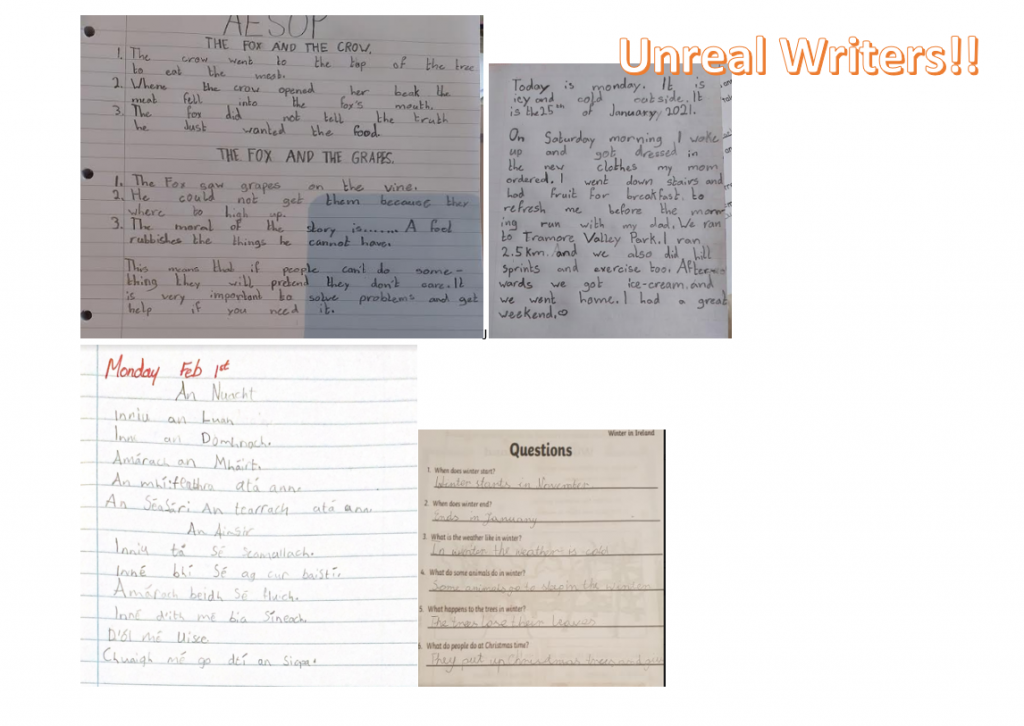 Unreal Writers!!
AESOP
THE FOX AND THE CROW.
1. The crow went to the top of the tree
to eat the meat.
2. Where the crow opened her beak the
meat fell into the fox's mouth.
3. The fox did not tell the truth
he Just wanted the food.
THE FOX AND THE GRAPES.
1. The Fox saw grapes on the vine.
2. He could not get them because they
where to high up.
3. The moral of the story is....... A fool
rubbishes the things he cannot have.
This means that if people can't do some-
thing they will pretend they don't care. It
is very important to solve problems and get
help if you need it.
J
Today is monday. It is
icy and cold outside. It
is the 25th of January 2021.
On Saturday morning I woke
up and got dressed in
the new clothes my mom
ordered. I went down stairs and
had fruit for breakfast. to
refresh me before the morn
ing run with my dad. We ran
to Tramore Valley Park. I ran
2.5km. and we also did hill
sprints and exercise too. After
wards we got ice-cream. and
we went home. I had a great
weekend.
Monday Feb 1st
An Nuacht
Inniu an Luan
Inné an Domhnach.
Amárach an Mháirt.
atá ann.
An Séasúrí An tearrach atá ann.
An Aimsir
Inniu tá Sé Scamallach.
Inné bhí Sé ag cur baistí.
Amárach beidh Sé fliuch.
Inné d'ith mé bia Síneach.
D'ól mé Uisce.
Chuaigh mé go dtí an Siopa.
Winter in Ireland
Questions
1. When does winter start?
Winter starts in November.
2. When does winter end?
Ends in January
3. What is the weather like in winter?
In winter the weather is cold
4. What do some animals do in winter?
Some animals go to sleep in the winter
5. What happens to the trees in winter?
The trees lose their leaves
6. What do people do at Christmas time?
They put up Christmas trees and